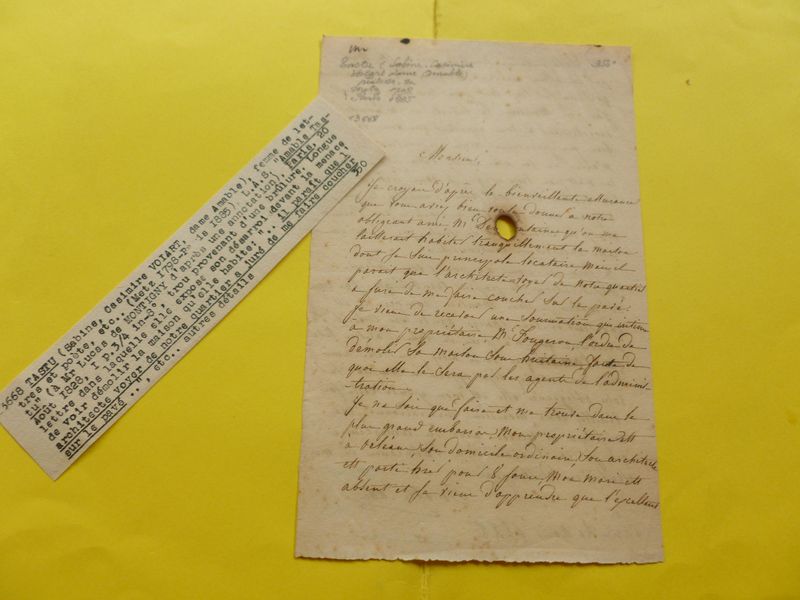 3668 TASTU (Sabine, Casimire VOIART, dame Amable), femme de let-
tres et poète, etc.. (Metz 1798-Paris 1885). L.A.S. "Amable Tas-
tu" (à Mr Lucas de MONTIGNY d'après une annotation), Paris, 20
Août 1828, 1 p.3/4 in-8°, trou provenant d'une brûlure. Longue
lettre dans laquelle elle expose son désarroi devant la menace
de voir démolir la maison qu'elle habite: ".. il paraît que l'
architecte voyer de notre quartier a juré de me faire coucher
sur le pavé ..", etc.. autres détails 350
Sabine, Casimire
1885
13668
350
Monsieur,
Je croyais d'après la bienveillante assurance
que vous aviez bien voulu donner à notre
obligeant ami Mr qu'on me
laisserait habiter tranquillement la maison
dont je suis principale locataire mais il
parait que l'architecte voyer de notre quartier
a juré de me faire coucher sur le pavé:
Je viens de recevoir une sommation qui intime
à mon propriétaire Mr Fougeron l'ordre de
démolir sa maison sous huitaine faute de
quoi elle le sera par les agents de l'adminis-
tration.
Je ne sais que faire et me trouve dans le
plus grand embarras, Mon propriétaire est
à Orléans, son domicile ordinaire, son architecte
est parti hier pour 8 jours, Mon mari est
absent et je viens d'apprendre que l'excellent